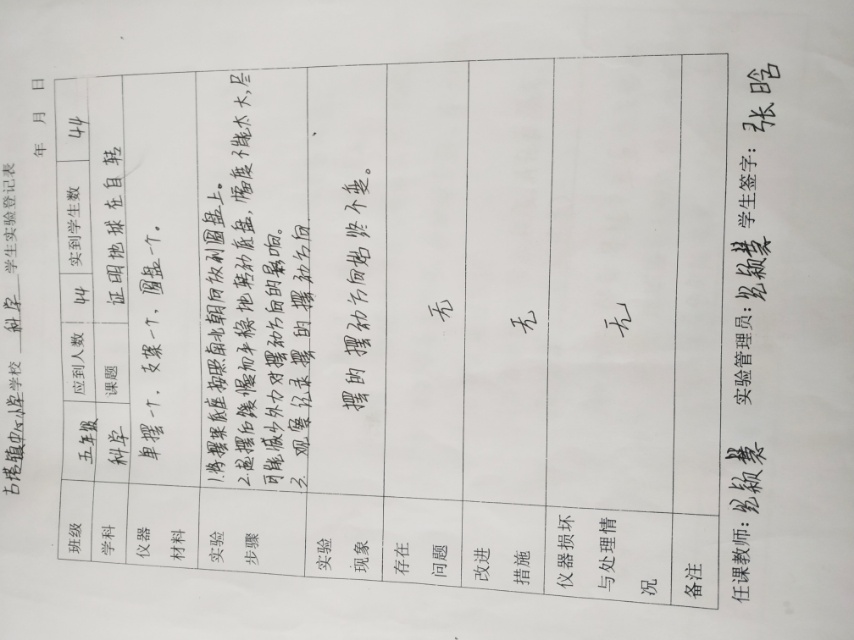 古塔镇中心小学学校 科学 学生实验登记表
年 月 日
班级 五年级 应到人数 44 实到学生数 44
学科 科学 课题 证明地球在自转
仪器材料 单摆一个、支架一个、圆盘一个。
实验步骤 1.将摆架底座按照南北朝向放到圆盘上。
2.起摆后缓慢而平稳地转动底盘,幅度不能太大,尽
可能减少外力对摆动方向的影响。
3.观察记录摆的摆动方向
实验现象 摆的摆动方向始终不变。
存在问题 无
改进措施 无
仪器损坏与处理情况 无
备注
任课教师: 颖慧 实验管理员: 颖慧 学生签字: 张晗